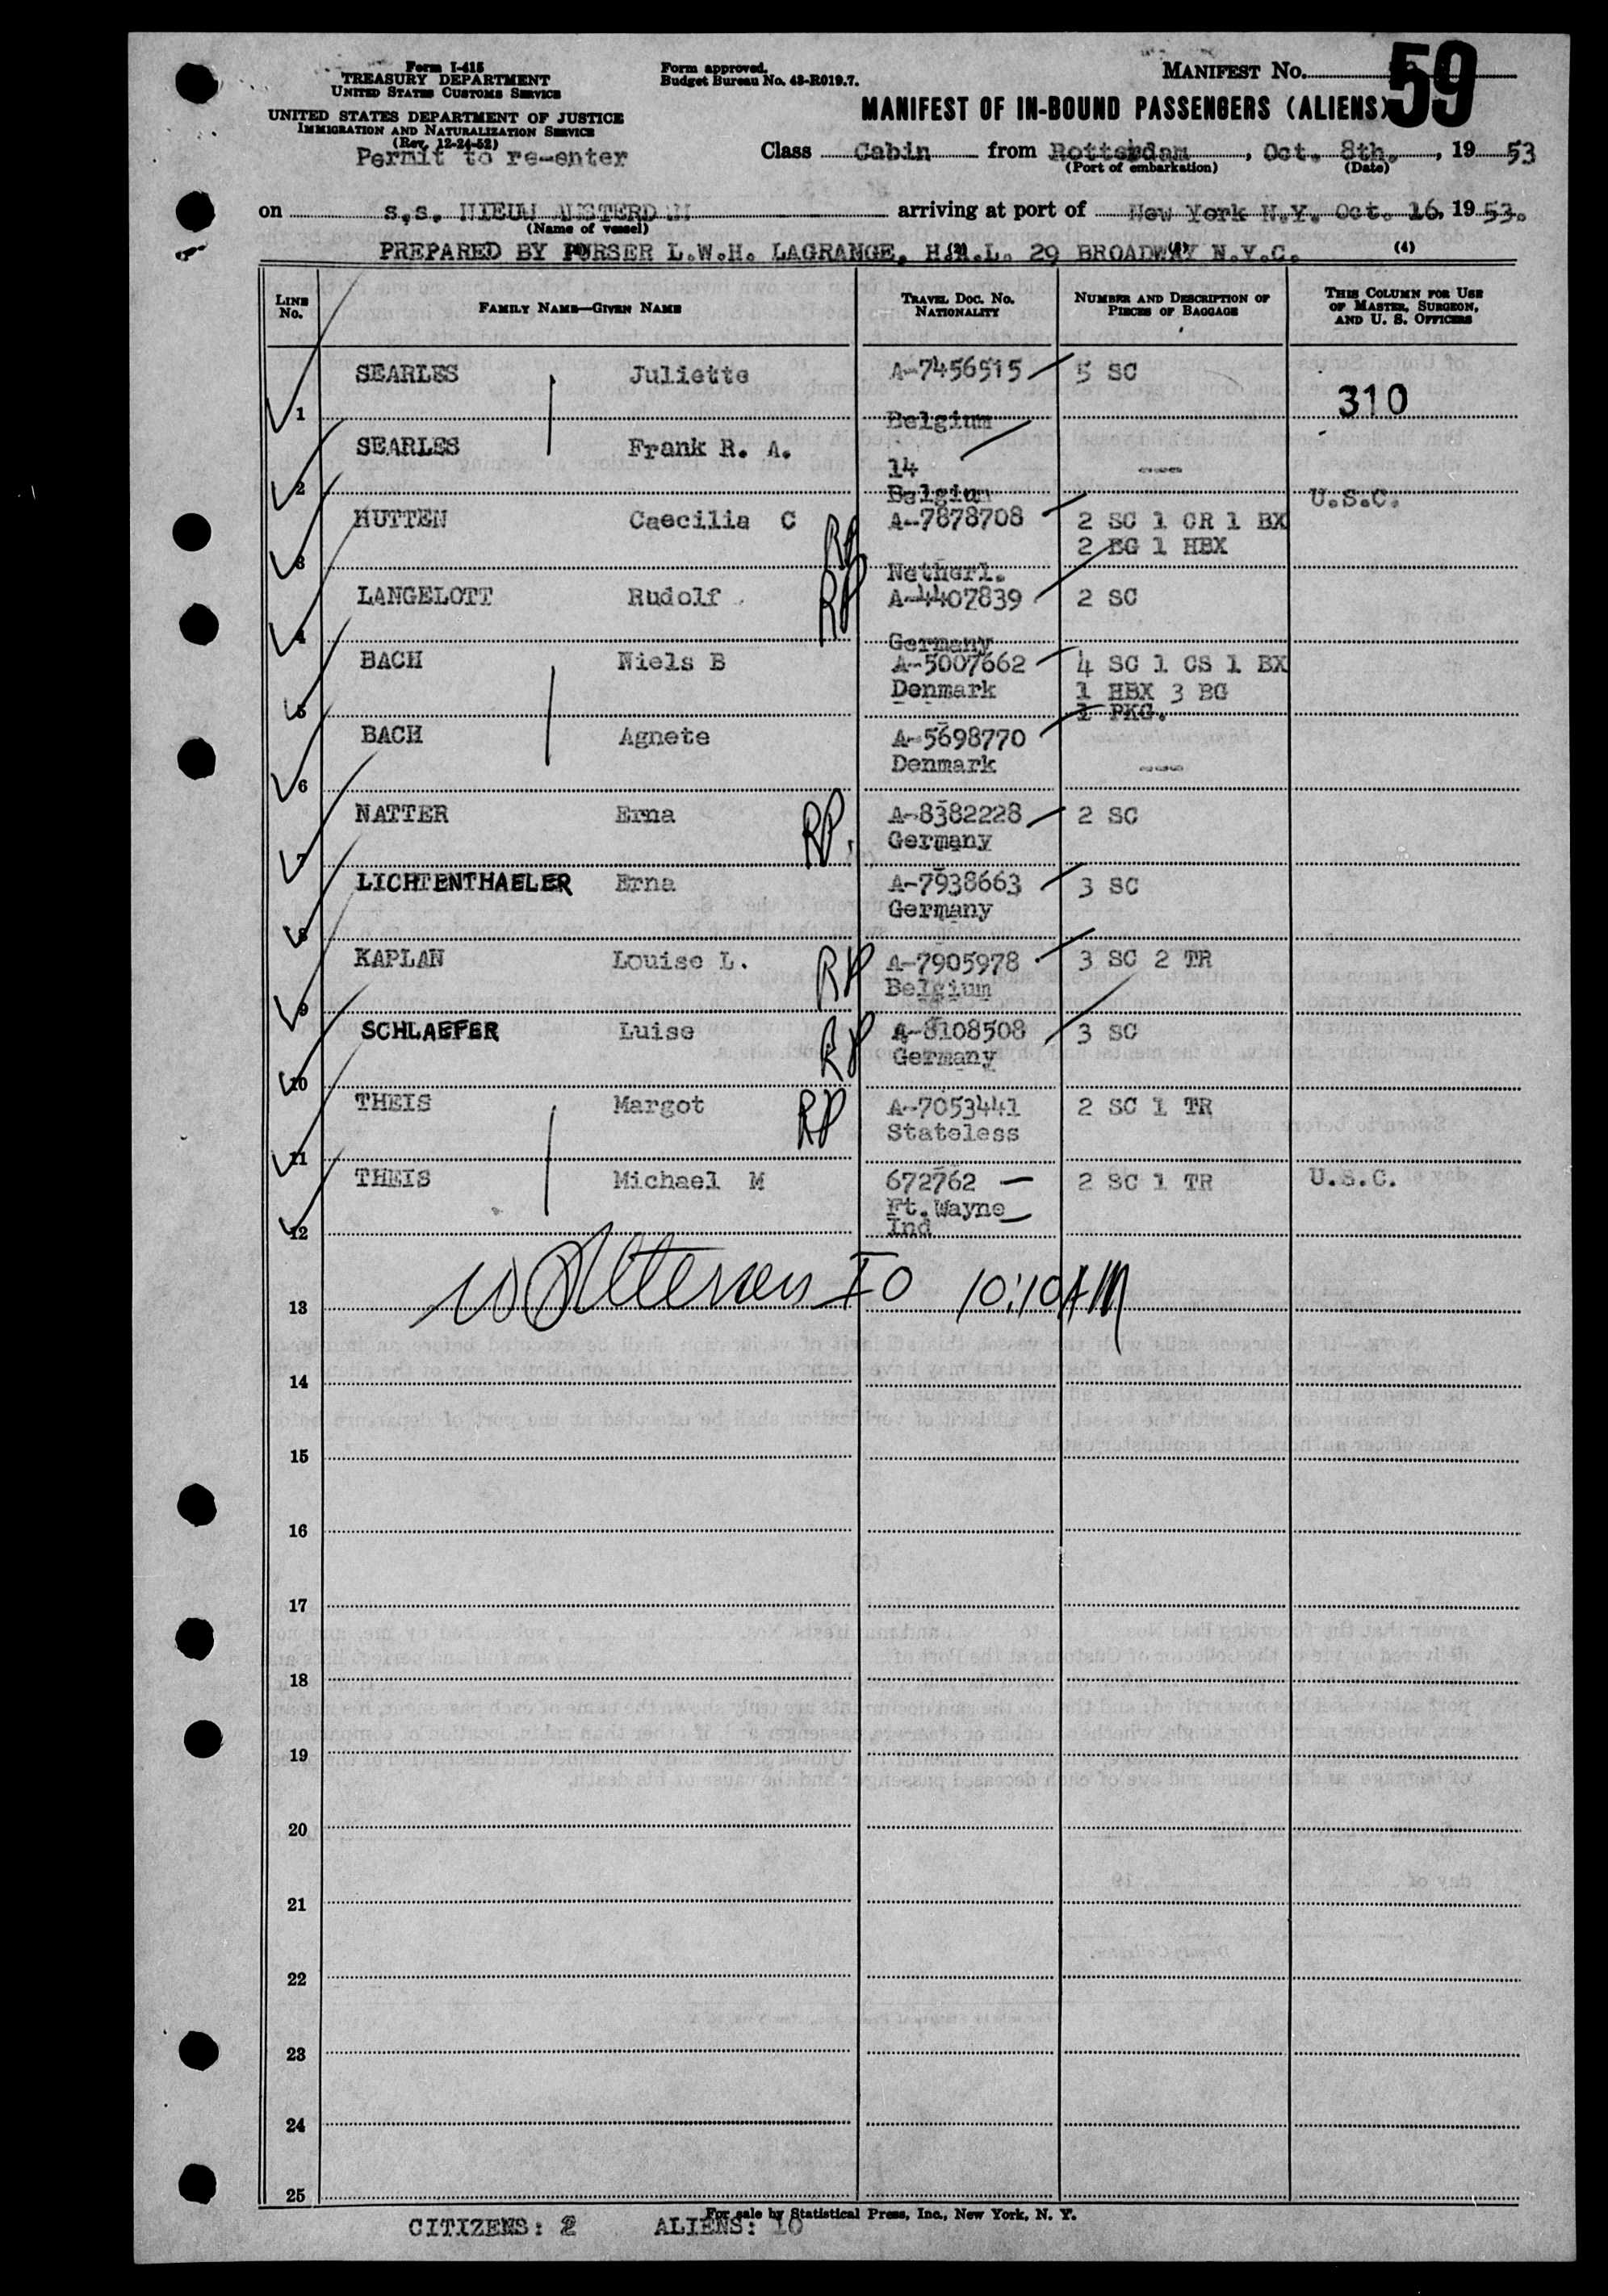 Form I-415
TREASURY DEPARTMENT
UNITED STATES CUSTOMS SERVICE
UNITED STATES DEPARTMENT OF JUSTICE
IMMIGRATION AND NATURALIZATION SERVICE
(Rev. 12-24-52)
Permit to re-enter
Form approved.
Budget Bureau No. 43-R019.7.
MANIFEST No. 59
MANIFEST OF IN-BOUND PASSENGERS (ALIENS)
Class Cabin from Rotterdam, Oct. 8th., 19 53
(Port of embarkation) (Date)
on s.s. NIEUW AMSTERDAM arriving at port of New York N.Y. Oct. 16, 19 53.
(Name of vessel)
PREPARED BY PURSER L.W.H. LAGRANGE, H.A.L. 29 BROADWAY N.Y.C.
(4)
LINE No. FAMILY NAME—GIVEN NAME TRAVEL DOC. NO. NATIONALITY NUMBER AND DESCRIPTION OF PIECES OF BAGGAGE THIS COLUMN FOR USE OF MASTER, SURGEON, AND U. S. OFFICERS
1 SEARLES Juliette A-7456515 5 SC
Belgium 310
2 SEARLES Frank R. A. 14 ---
Belgium U.S.C.
3 HUTTEN Caecilia C RP A-7878708 2 SC 1 CR 1 BX
2 BG 1 HBX
Netherl.
4 LANGELOTT Rudolf RP A-4407839 2 SC
Germany
5 BACH Niels B A-5007662 4 SC 1 CS 1 BX
Denmark 1 HBX 3 BG
1 PKG.
6 BACH Agnete A-5698770
Denmark ---
7 NATTER Erna RP. A-8382228 2 SC
Germany
8 LICHTENTHAELER Erna A-7938663 3 SC
Germany
9 KAPLAN Louise L. RP A-7905978 3 SC 2 TR
Belgium
10 SCHLAEFER Luise RP A-8108508 3 SC
Germany
11 THEIS Margot RP A-7053441 2 SC 1 TR
Stateless
12 THEIS Michael M 672762 2 SC 1 TR U.S.C.
Ft. Wayne
Ind
13 IO 10:10 AM
14
15
16
17
18
19
20
21
22
23
24
25
For sale by Statistical Press, Inc., New York, N. Y.
CITIZENS: 2 ALIENS: 10